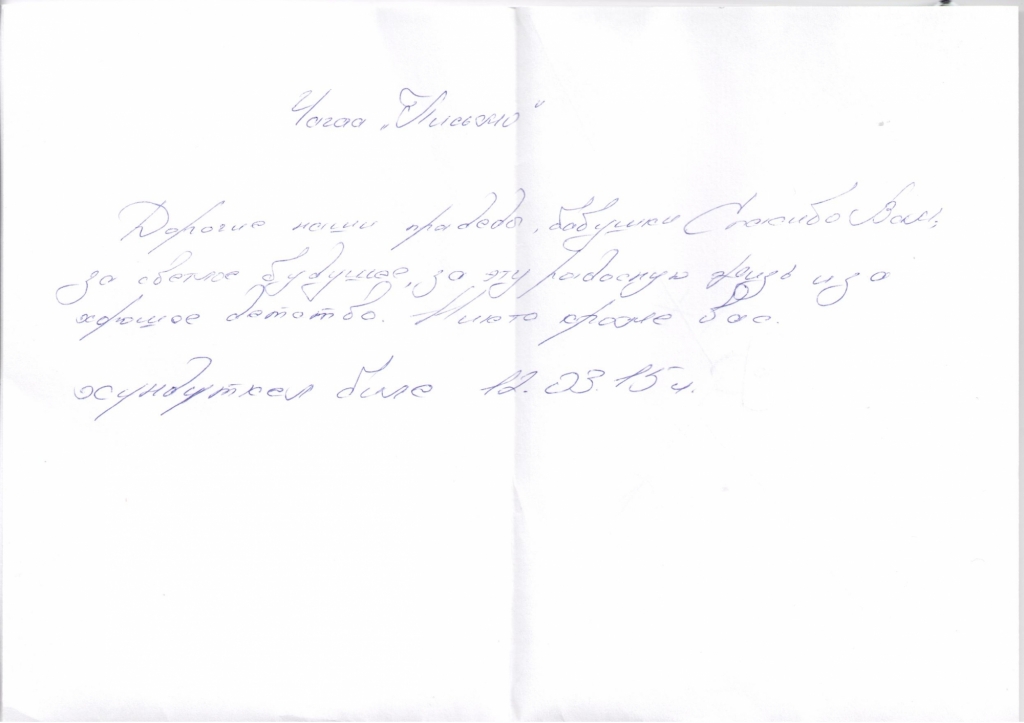 Чагаа „Письмо"
Дорогие наши прадеды, бабушки Спасибо Вам,
за светлое будущее, за эту радосную жизнь и за
хорошое детство. Никто кроме вас.
хүндүткел биле 12.03.15ч.